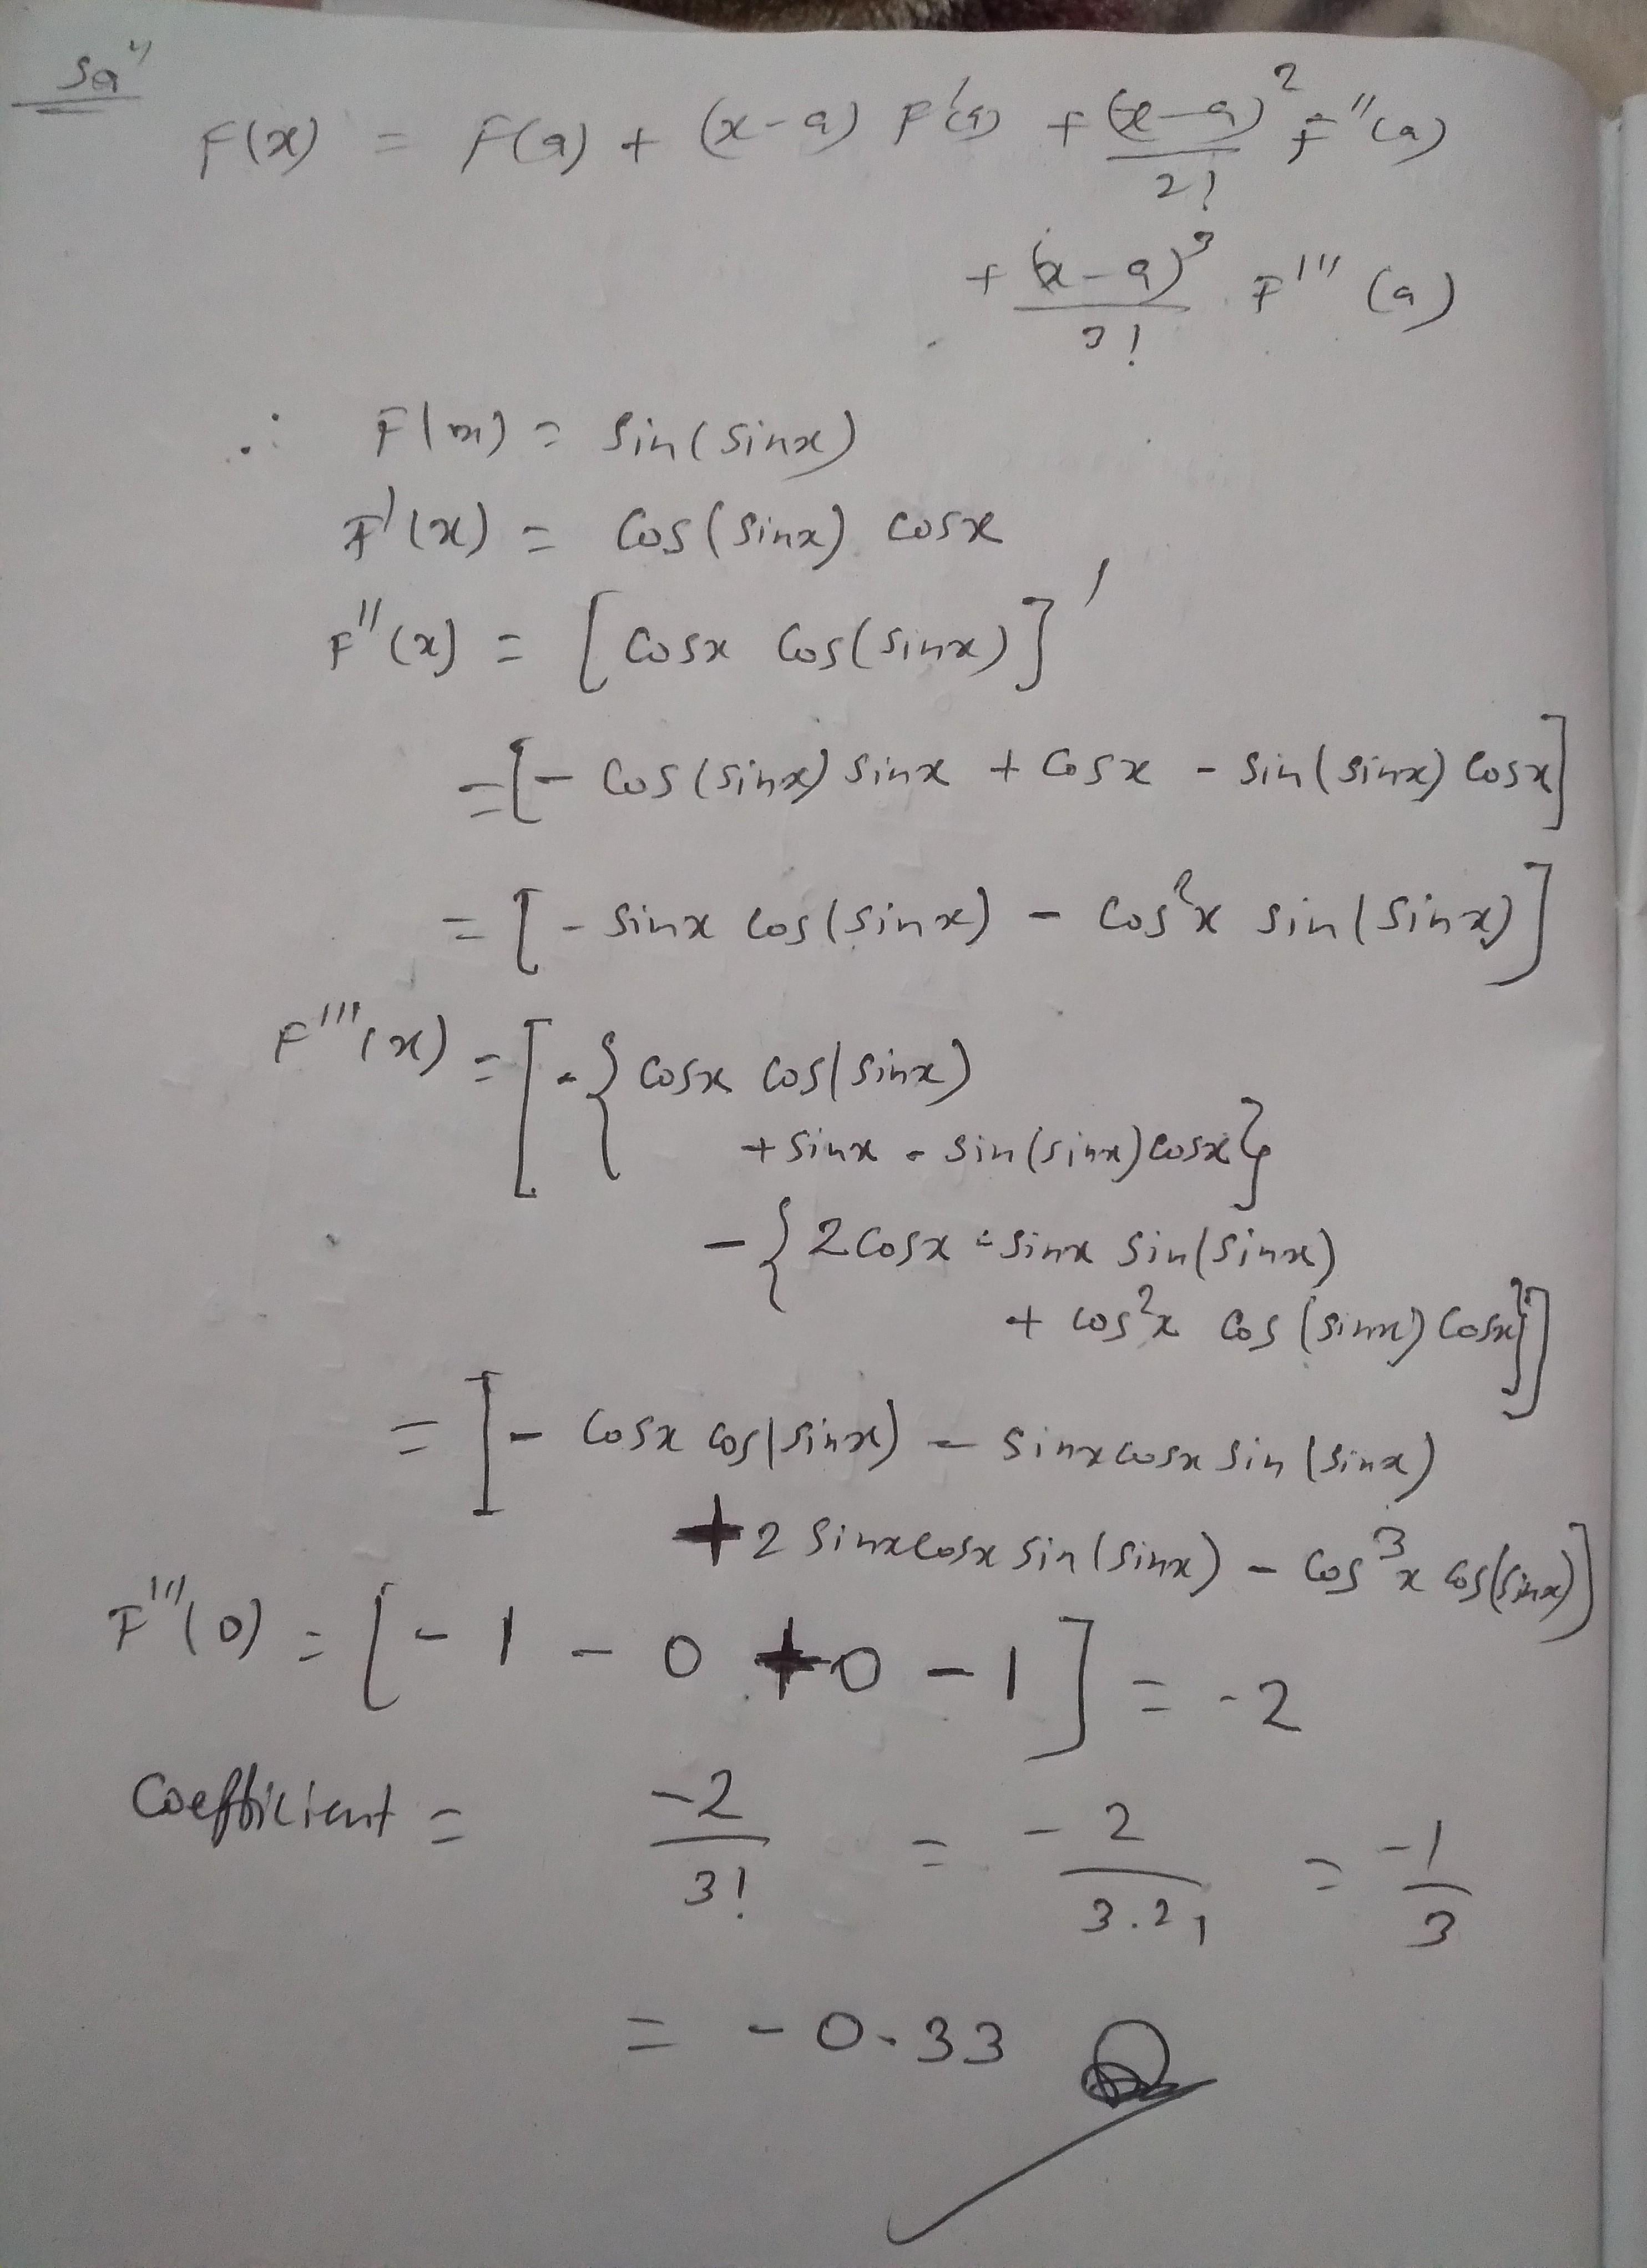 Solⁿ
F(x) = F(a) + (x-a) F'(a) + (x-a)²/2! F''(a)
+ (x-a)³/3! F'''(a)
∴ F(x) = Sin(Sinx)
F'(x) = Cos(Sinx) Cosx
F''(x) = [Cosx Cos(Sinx)]'
= [- Cos(Sinx) Sinx + Cosx - Sin(Sinx) Cosx]
= [- Sinx Cos(Sinx) - Cos²x Sin(Sinx)]
F'''(x) = [-{Cosx Cos(Sinx)
+ Sinx - Sin(Sinx) Cosx}
- {2 Cosx - Sinx Sin(Sinx)
+ Cos²x Cos(Sinx) Cosx}]
= [- Cosx Cos(Sinx) - Sinx Cosx Sin(Sinx)
+ 2 Sinx Cosx Sin(Sinx) - Cos³x Cos(Sinx)]
F'''(0) = [-1 - 0 + 0 - 1] = -2
Coefficient = -2/3! = -2/3.2,1 = -1/3
= -0.33